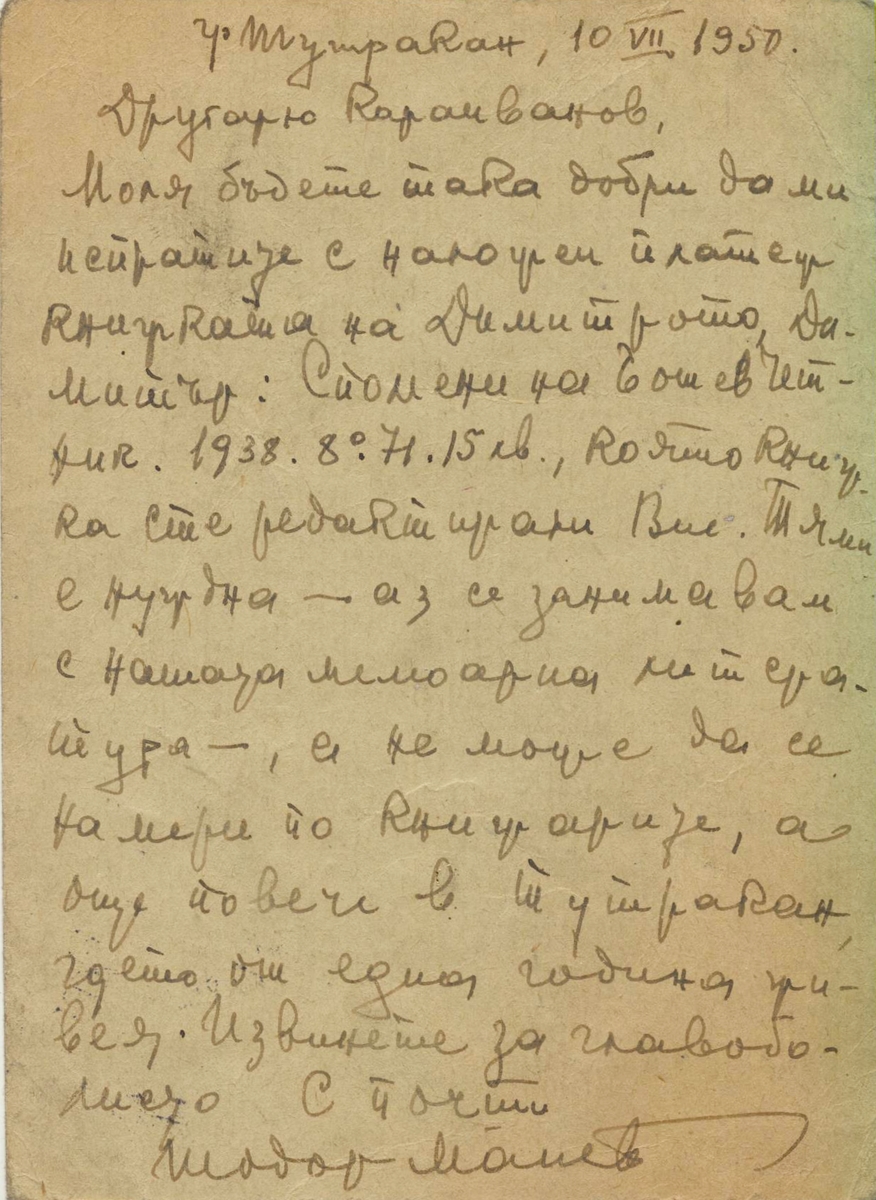 гр. Тутракан, 10 VII 1950.
Другарю Караиванов,
Моля бъдете така добри да ми
испратите с наложен платеж
книжката на Димитрото, Ди-
митър: Спомени на Ботев чет-
ник. 1938. 8°. 71. 15 лв., която книж-
ка сте редактирали Вие. Тя ми
е нуждна — аз се занимавам
с нашата мемоарна литера-
тура —, а не може да се
намери по книжарите, а
още повече в Тутракан,
гдето от една година жи-
вея. Извинете за главобо-
лието С почит
Тодор Манев